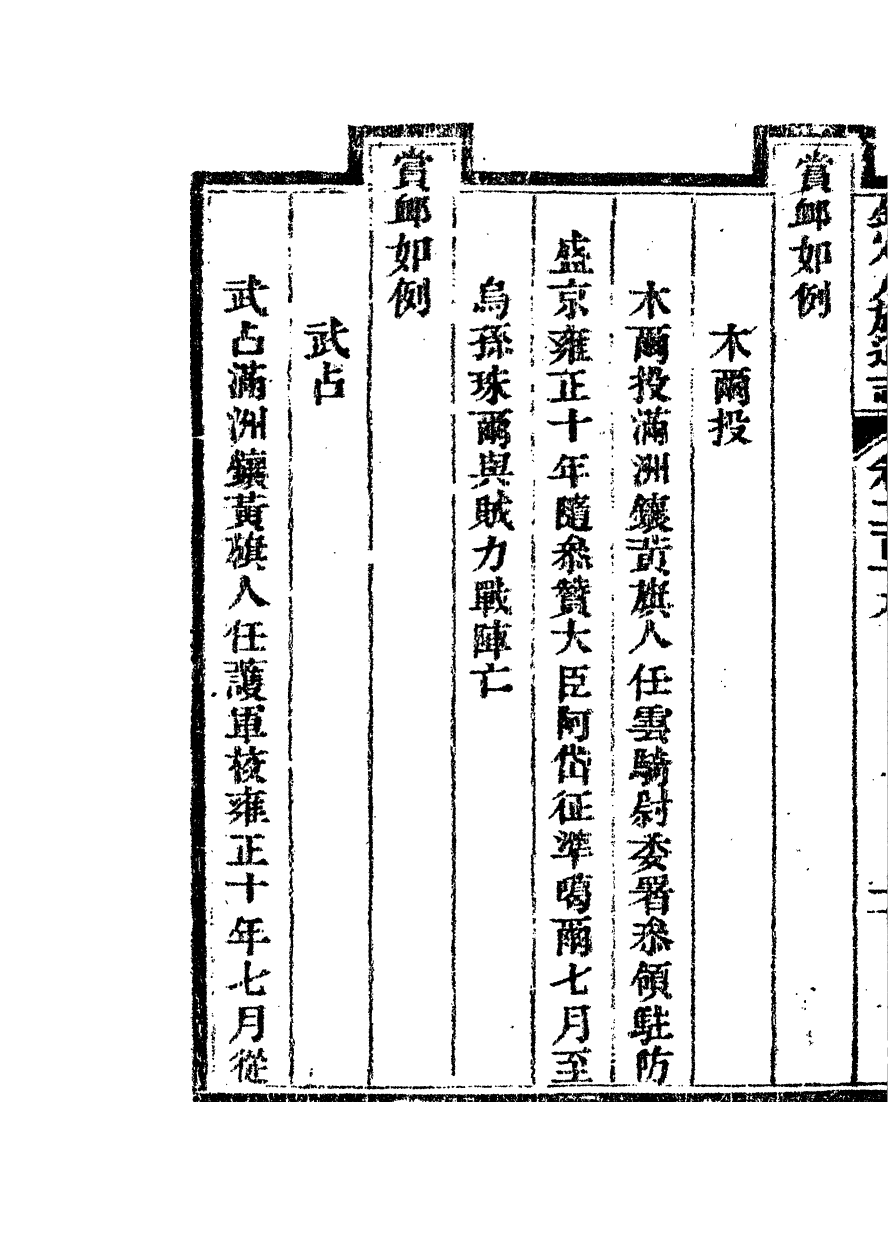 賞卹如例
木爾投
木爾投滿洲鑲黃旗人任雲騎尉委署叅領駐防
盛京雍正十年隨叅贊大臣阿岱征準噶爾七月至
烏孫珠爾與賊力戰陣亡
賞卹如例
武占
武占滿洲鑲黃旗人任護軍校雍正十年七月從